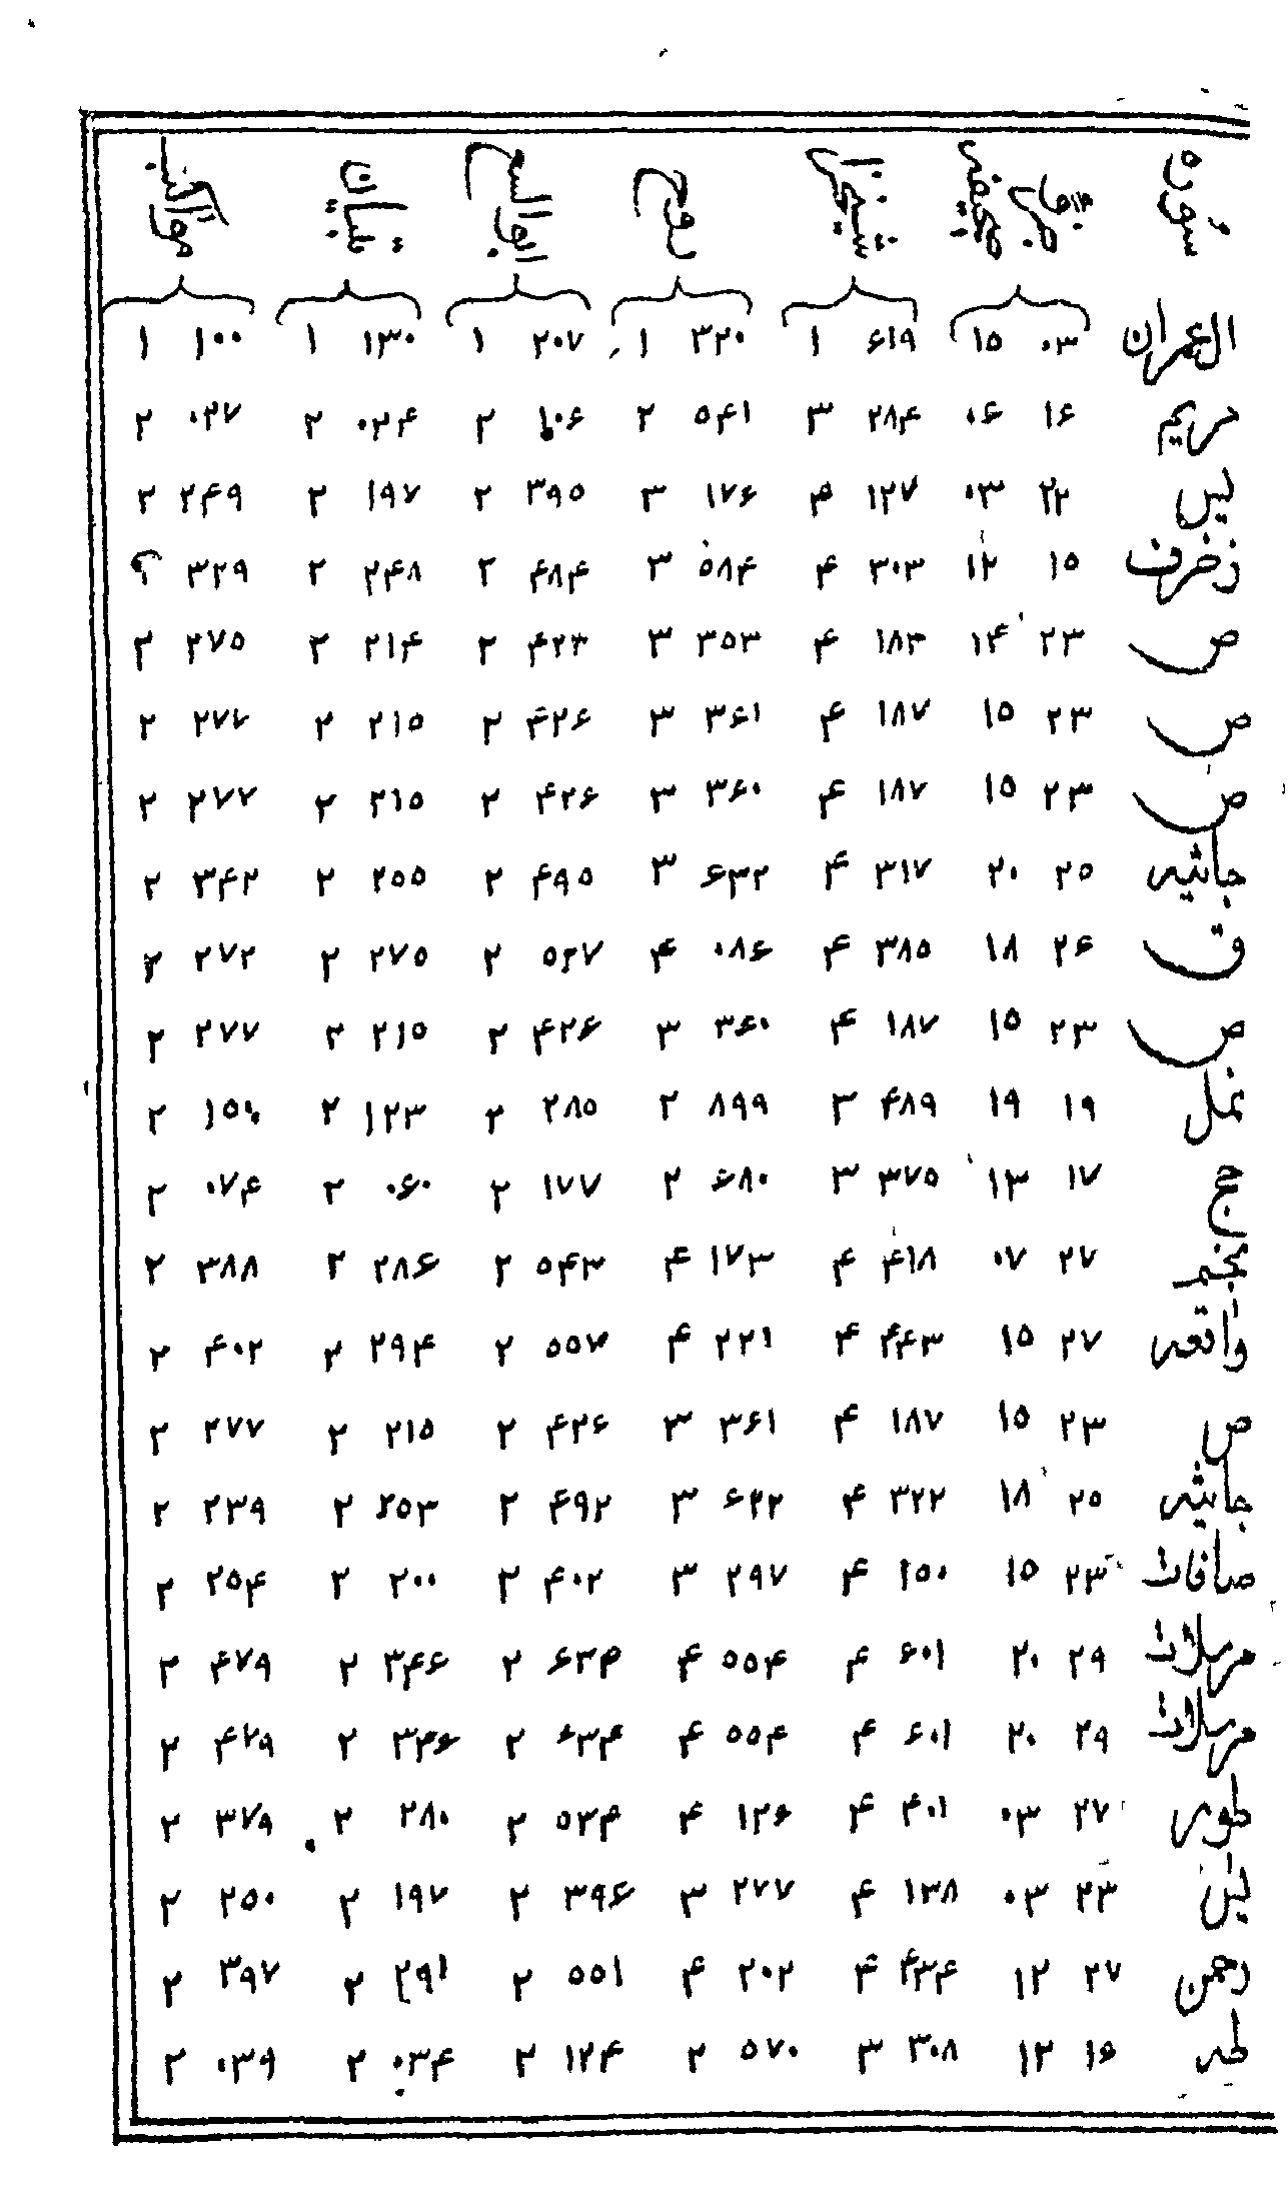 سوره جزو صحيفه شيخ روح ابوالسعود تبيان مواكب
ال عمران ۰۳ ۱۵ ۶۱۹ ۱ ۳۲۰ ۱ ۲۰۷ ۱ ۱۳۰ ۱ ۱۰۰ ۱
مريم ۱۶ ۰۶ ۲۸۴ ۳ ۵۴۱ ۲ ۱۰۶ ۲ ۰۲۴ ۲ ۰۲۷ ۲
يس ۲۲ ۰۳ ۱۲۷ ۴ ۱۷۶ ۳ ۳۹۵ ۲ ۱۹۷ ۲ ۲۴۹ ۲
زخرف ۱۵ ۱۲ ۳۰۳ ۴ ۵۸۴ ۳ ۴۸۴ ۲ ۲۴۸ ۲ ۳۲۹ ؟
ص ۲۳ ۱۴ ۱۸۳ ۴ ۳۵۳ ۳ ۴۲۳ ۲ ۲۱۴ ۲ ۲۷۵ ۲
ص ۲۳ ۱۵ ۱۸۷ ۴ ۳۶۱ ۳ ۴۲۶ ۲ ۲۱۵ ۲ ۲۷۷ ۲
ص ۲۳ ۱۵ ۱۸۷ ۴ ۳۶۰ ۳ ۴۲۶ ۲ ۲۱۵ ۲ ۲۷۷ ۲
جاثيه ۲۵ ۲۰ ۳۱۷ ۴ ۶۳۲ ۳ ۴۹۵ ۲ ۲۵۵ ۲ ۳۴۲ ۲
ق ۲۶ ۱۸ ۳۸۵ ۴ ۰۸۶ ۴ ۵۲۷ ۲ ۲۷۵ ۲ ۲۷۲ ۲
ص ۲۳ ۱۵ ۱۸۷ ۴ ۳۶۰ ۳ ۴۲۶ ۲ ۲۱۵ ۲ ۲۷۷ ۲
نمل ۱۹ ۱۹ ۴۸۹ ۳ ۸۹۹ ۲ ۲۸۵ ۲ ۱۲۳ ۲ ۱۵۰ ۲
حج ۱۷ ۱۳ ۳۷۵ ۳ ۶۸۰ ۲ ۱۷۷ ۲ ۰۶۰ ۲ ۰۷۴ ۲
نجم ۲۷ ۰۷ ۴۱۸ ۴ ۱۷۳ ۴ ۵۴۳ ۲ ۲۸۶ ۲ ۳۸۸ ۲
واقعه ۲۷ ۱۵ ۴۴۳ ۴ ۲۲۱ ۴ ۵۵۷ ۲ ۲۹۴ ۲ ۴۰۲ ۲
ص ۲۳ ۱۵ ۱۸۷ ۴ ۳۶۱ ۳ ۴۲۶ ۲ ۲۱۵ ۲ ۲۷۷ ۲
جاثيه ۲۵ ۱۸ ۳۲۲ ۴ ۶۲۲ ۳ ۴۹۲ ۲ ۲۵۳ ۲ ۲۳۹ ۲
صافات ۲۳ ۱۵ ۱۵۰ ۴ ۲۹۷ ۳ ۴۰۲ ۲ ۲۰۰ ۲ ۲۵۴ ۲
مرسلات ۲۹ ۲۰ ۶۰۱ ۴ ۵۵۴ ۴ ۶۳۴ ۲ ۳۴۶ ۲ ۴۷۹ ۲
مرسلات ۲۹ ۲۰ ۶۰۱ ۴ ۵۵۴ ۴ ۶۳۴ ۲ ۳۴۶ ۲ ۴۷۹ ۲
طور ۲۷ ۰۳ ۴۰۱ ۴ ۱۲۶ ۴ ۵۳۴ ۲ ۲۸۰ ۲ ۳۷۹ ۲
يس ۲۳ ۰۳ ۱۳۸ ۴ ۲۷۷ ۳ ۳۹۶ ۲ ۱۹۷ ۲ ۲۵۰ ۲
رحمن ۲۷ ۱۲ ۴۳۴ ۴ ۲۰۲ ۴ ۵۵۱ ۲ ۲۹۱ ۲ ۳۹۷ ۲
طه ۱۶ ۱۲ ۳۰۸ ۳ ۵۷۰ ۲ ۱۲۴ ۲ ۰۳۴ ۲ ۰۳۹ ۲